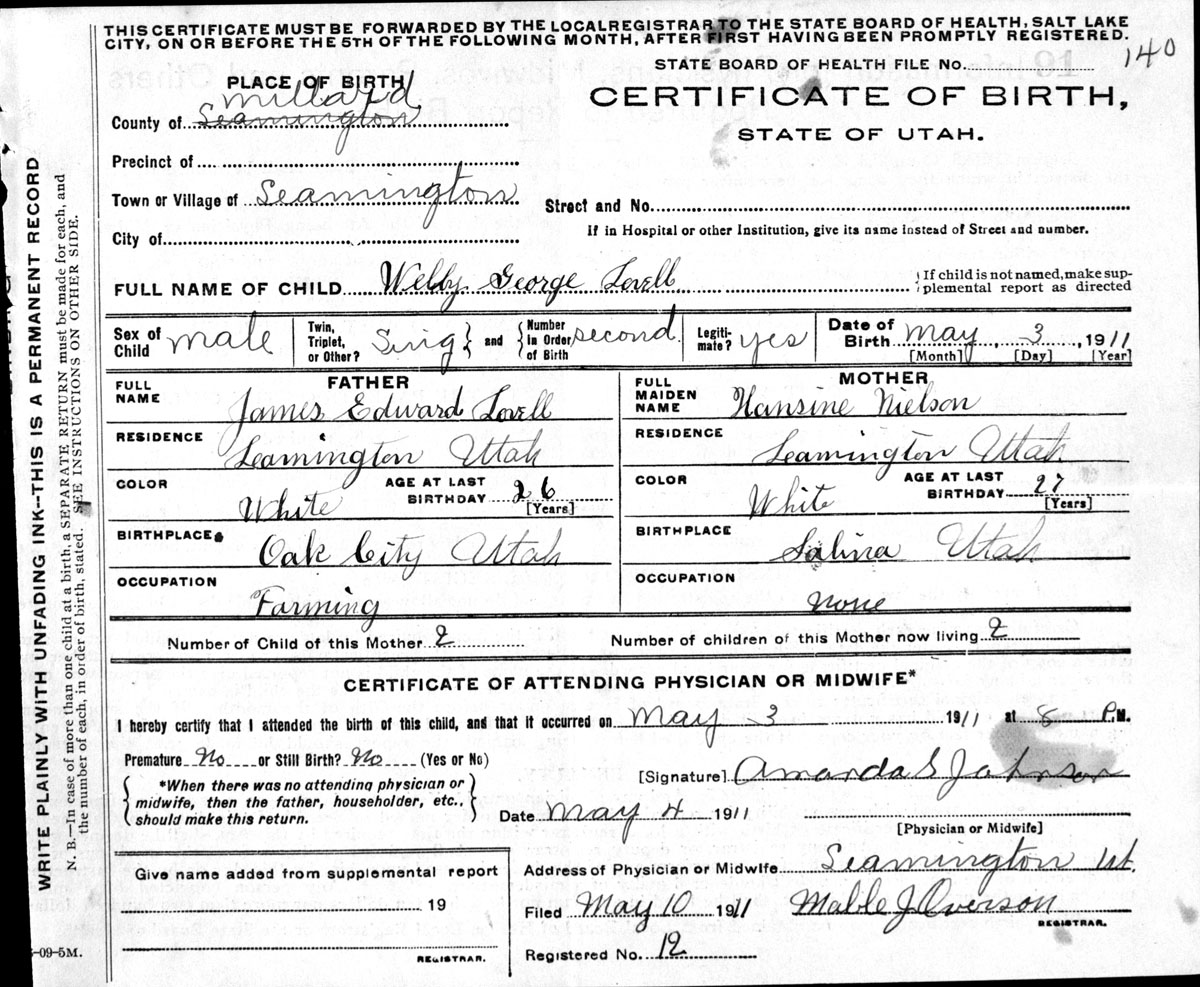 THIS CERTIFICATE MUST BE FORWARDED BY THE LOCAL REGISTRAR TO THE STATE BOARD OF HEALTH, SALT LAKE
CITY, ON OR BEFORE THE 5TH OF THE FOLLOWING MONTH, AFTER FIRST HAVING BEEN PROMPTLY REGISTERED.
STATE BOARD OF HEALTH FILE No. 140
PLACE OF BIRTH
CERTIFICATE OF BIRTH,
STATE OF UTAH.
Millard
County of Leamington
Precinct of
Town or Village of Leamington
Street and No.
City of
If in Hospital or other Institution, give its name instead of Street and number.
FULL NAME OF CHILD Welby George Lovell { If child is not named, make supplemental report as directed
Sex of Child male Twin, Triplet, or Other? Sing } and { Number in Order of Birth second Legitimate? yes Date of Birth May 3, 1911
[Month] [Day] [Year]
FATHER
FULL NAME James Edward Lovell
RESIDENCE Leamington Utah
COLOR White AGE AT LAST BIRTHDAY 26 [Years]
BIRTHPLACE Oak City Utah
OCCUPATION Farming
MOTHER
FULL MAIDEN NAME Hansine Nielson
RESIDENCE Leamington Utah
COLOR White AGE AT LAST BIRTHDAY 27 [Years]
BIRTHPLACE Salina Utah
OCCUPATION None
Number of Child of this Mother 2 Number of children of this Mother now living 2
CERTIFICATE OF ATTENDING PHYSICIAN OR MIDWIFE*
I hereby certify that I attended the birth of this child, and that it occurred on May 3 1911 at 8 P.M.
Premature No or Still Birth? No (Yes or No)
{ *When there was no attending physician or
midwife, then the father, householder, etc.,
should make this return. }
[Signature] Amanda S Johnson
Date May 4 1911
[Physician or Midwife]
Give name added from supplemental report
19
REGISTRAR.
Address of Physician or Midwife Leamington Ut.
Filed May 10 1911 Mable J Overson
REGISTRAR.
Registered No. 12
-09-5M.
WRITE PLAINLY WITH UNFADING INK--THIS IS A PERMANENT RECORD
N. B.—In case of more than one child at a birth, a SEPARATE RETURN must be made for each, and
the number of each, in order of birth, stated. SEE INSTRUCTIONS ON OTHER SIDE.